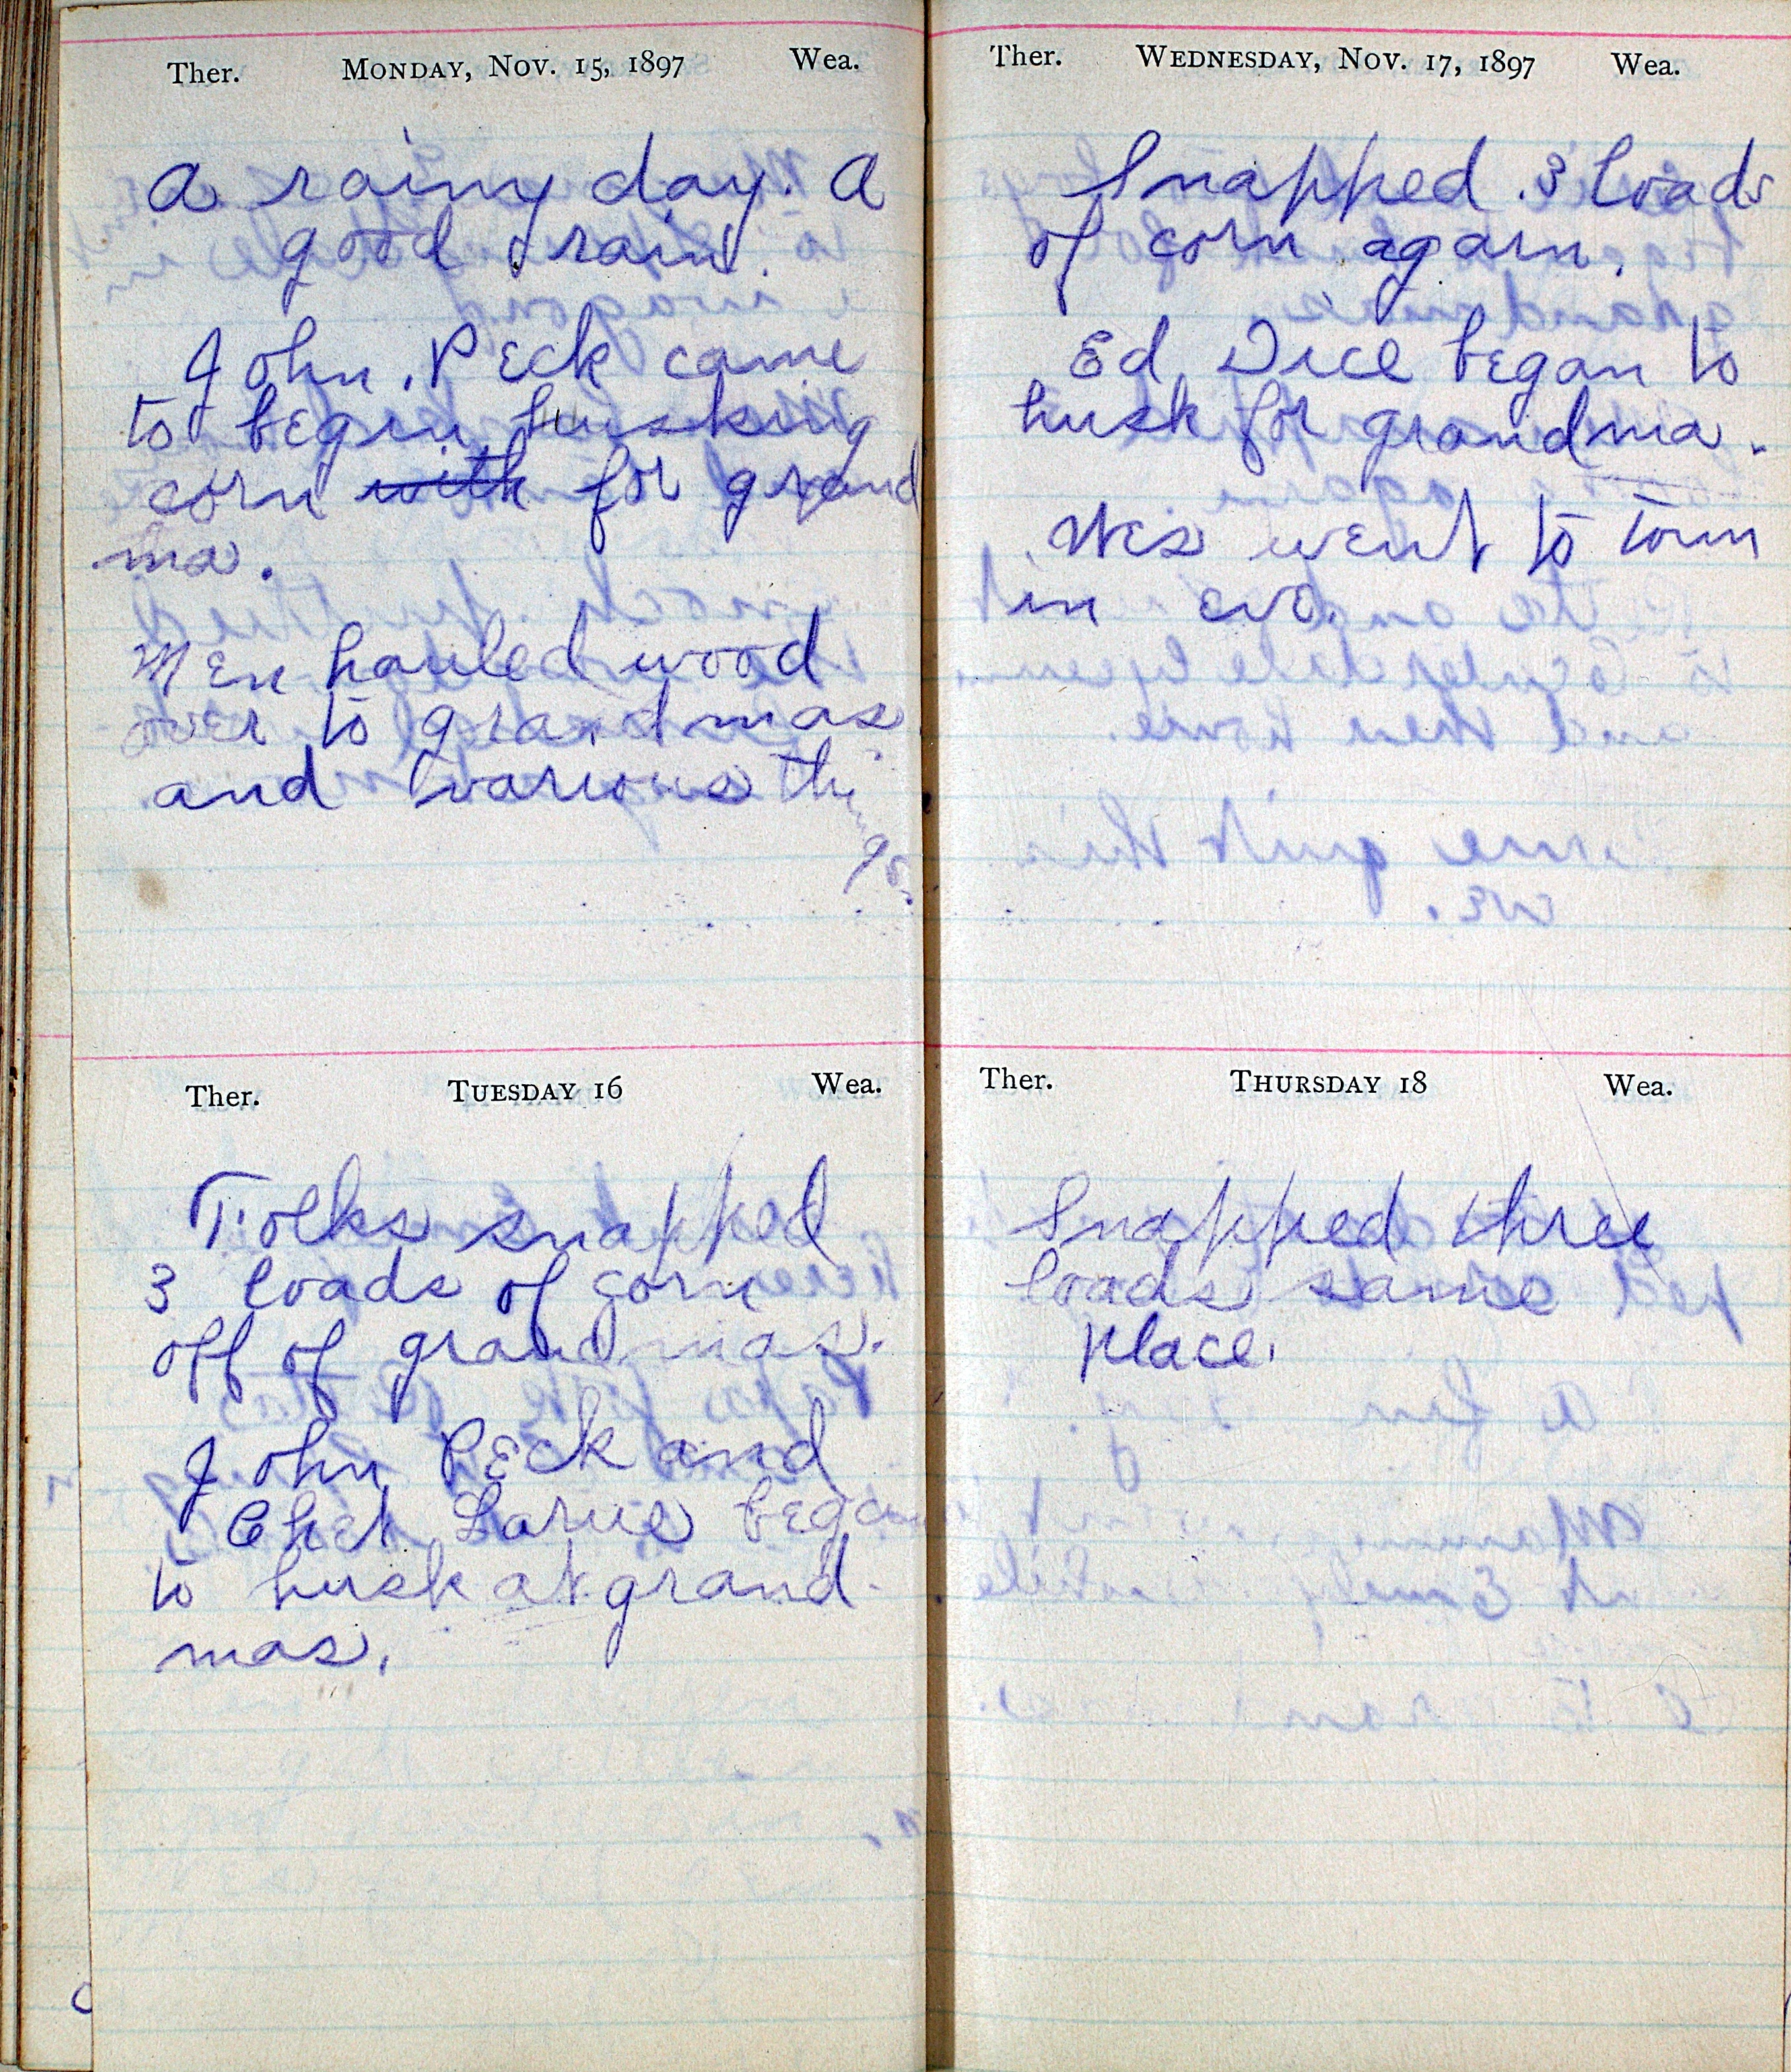 Ther. MONDAY, NOV. 15, 1897 Wea.
A rainy day. A
good rain.
John Peck came
to begin husking
corn with for grand
ma.
Men hauled wood
over to grandmas
and various thi
ngs.
Ther. TUESDAY 16 Wea.
Folks snapped
3 loads of corn
off of grandmas.
John Peck and
Chet Larue began
to husk at grand-
mas.
Ther. WEDNESDAY, NOV. 17, 1897 Wea.
Snapped 3 loads
of corn again.
Ed Dice began to
husk for grandma.
Wes went to town
in eve.
Ther. THURSDAY 18 Wea.
Snapped three
loads same
place.